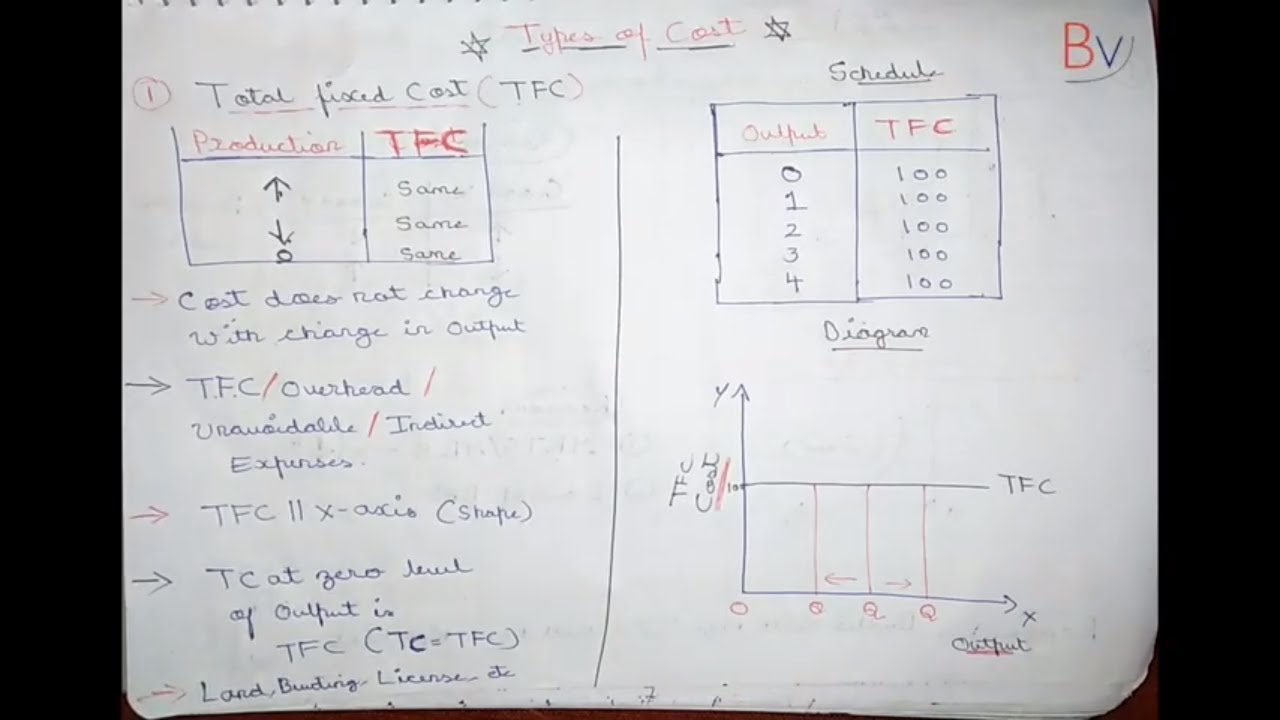 Types of Cost
BV
① Total fixed Cost (TFC)
Production TFC
↑ Same
↓ Same
0 Same
→ Cost does not change
with change in Output
→ T.F.C / Overhead /
Unavoidable / Indirect
Expenses.
→ TFC || X-axis (Shape)
→ TC at zero level
of Output is
TFC (TC = TFC)
→ Land, Building, License, etc
Schedule
Output TFC
0 100
1 100
2 100
3 100
4 100
Diagram
Y
TFC
Cost
10
TFC
O Q Q Q
X
Output